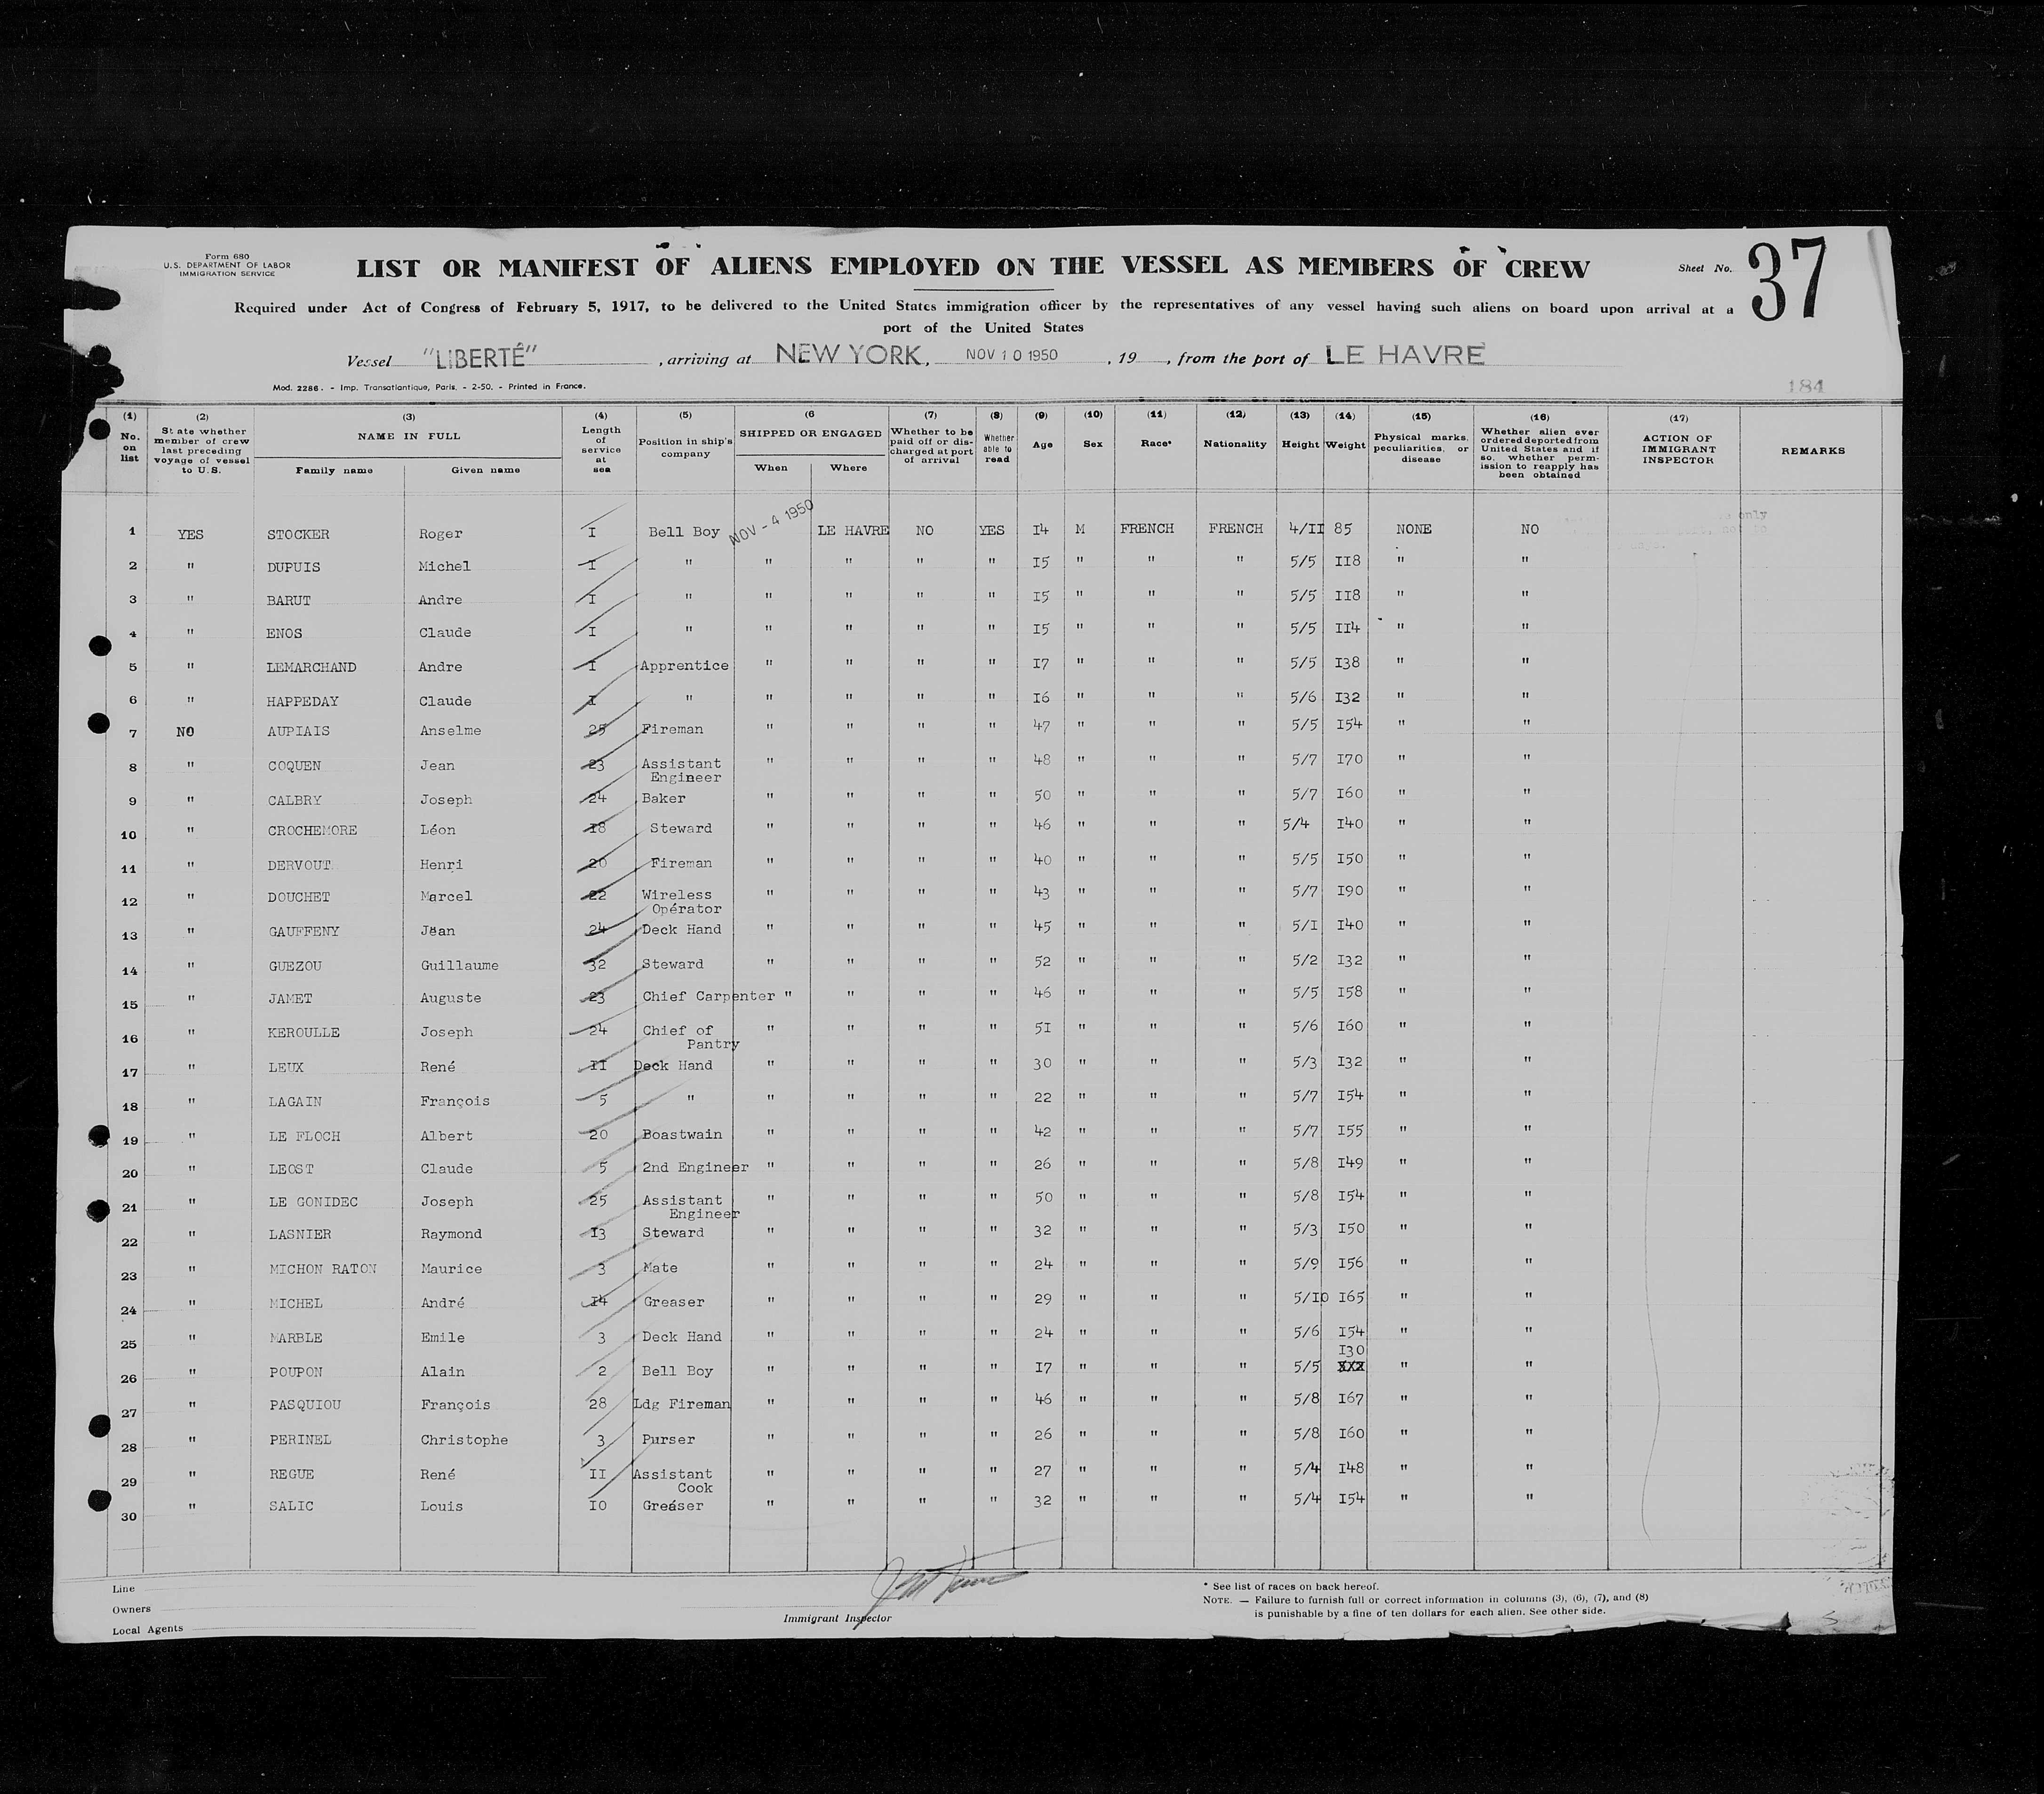 Form 680
U.S. DEPARTMENT OF LABOR
IMMIGRATION SERVICE
LIST OR MANIFEST OF ALIENS EMPLOYED ON THE VESSEL AS MEMBERS OF CREW
Sheet No. 37
Required under Act of Congress of February 5, 1917, to be delivered to the United States immigration officer by the representatives of any vessel having such aliens on board upon arrival at a
port of the United States
Vessel "LIBERTÉ" , arriving at NEW YORK, NOV 10 1950 , 19 , from the port of LE HAVRE
Mod. 2286. - Imp. Transatlantique, Paris. - 2-50. - Printed in France.
184
(1) (2) (3) (4) (5) (6 (7) (8) (9) (10) (11) (12) (13) (14) (15) (16) (17)
No. on list
State whether member of crew last preceding voyage of vessel to U.S.
NAME IN FULL
Family name Given name
Length of service at sea
Position in ship's company
SHIPPED OR ENGAGED
When Where
Whether to be paid off or discharged at port of arrival
Whether able to read
Age Sex Race* Nationality Height Weight
Physical marks, peculiarities, or disease
Whether alien ever ordered deported from United States and if so, whether permission to reapply has been obtained
ACTION OF IMMIGRANT INSPECTOR
REMARKS
1 YES STOCKER Roger I Bell Boy NOV - 4 1950 LE HAVRE NO YES I4 M FRENCH FRENCH 4/II 85 NONE NO
2 " DUPUIS Michel I " " " " " I5 " " " 5/5 II8 " "
3 " BARUT Andre I " " " " " I5 " " " 5/5 II8 " "
4 " ENOS Claude I " " " " " I5 " " " 5/5 II4 " "
5 " LEMARCHAND Andre I Apprentice " " " " I7 " " " 5/5 I38 " "
6 " HAPPEDAY Claude I " " " " " I6 " " " 5/6 I32 " "
7 NO AUPIAIS Anselme 25 Fireman " " " " 47 " " " 5/5 I54 " "
8 " COQUEN Jean 23 Assistant Engineer " " " " 48 " " " 5/7 I70 " "
9 " CALBRY Joseph 24 Baker " " " " 50 " " " 5/7 I60 " "
10 " CROCHEMORE Léon I8 Steward " " " " 46 " " " 5/4 I40 " "
11 " DERVOUT Henri 20 Fireman " " " " 40 " " " 5/5 I50 " "
12 " DOUCHET Marcel 22 Wireless Opérator " " " " 43 " " " 5/7 I90 " "
13 " GAUFFENY Jean 24 Deck Hand " " " " 45 " " " 5/I I40 " "
14 " GUEZOU Guillaume 32 Steward " " " " 52 " " " 5/2 I32 " "
15 " JAMET Auguste 23 Chief Carpenter " " " " 46 " " " 5/5 I58 " "
16 " KEROULLE Joseph 24 Chief of Pantry " " " " 5I " " " 5/6 I60 " "
17 " LEUX René II Deck Hand " " " " 30 " " " 5/3 I32 " "
18 " LAGAIN François 5 " " " " " 22 " " " 5/7 I54 " "
19 " LE FLOCH Albert 20 Boastwain " " " " 42 " " " 5/7 I55 " "
20 " LEOST Claude 5 2nd Engineer " " " " 26 " " " 5/8 I49 " "
21 " LE GONIDEC Joseph 25 Assistant Engineer " " " " 50 " " " 5/8 I54 " "
22 " LASNIER Raymond I3 Steward " " " " 32 " " " 5/3 I50 " "
23 " MICHON RATON Maurice 3 Mate " " " " 24 " " " 5/9 I56 " "
24 " MICHEL André I4 Greaser " " " " 29 " " " 5/IO I65 " "
25 " MARBLE Emile 3 Deck Hand " " " " 24 " " " 5/6 I54 " "
26 " POUPON Alain 2 Bell Boy " " " " I7 " " " 5/5 I30 XXX " "
27 " PASQUIOU François 28 Ldg Fireman " " " " 46 " " " 5/8 I67 " "
28 " PERINEL Christophe 3 Purser " " " " 26 " " " 5/8 I60 " "
29 " REGUE René II Assistant Cook " " " " 27 " " " 5/4 I48 " "
30 " SALIC Louis IO Greáser " " " " 32 " " " 5/4 I54 " "
Line
Owners
Local Agents
Immigrant Inspector
* See list of races on back hereof.
NOTE. — Failure to furnish full or correct information in columns (3), (6), (7), and (8)
is punishable by a fine of ten dollars for each alien. See other side.